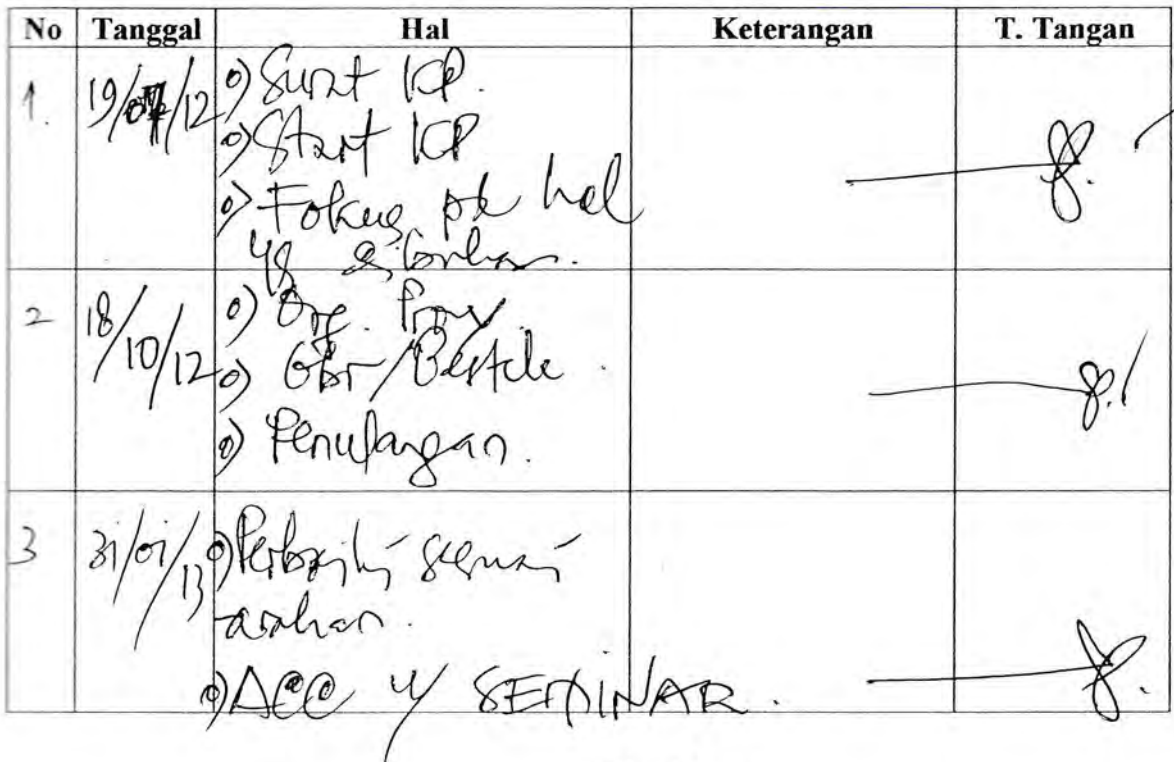 No Tanggal Hal Keterangan T. Tangan
1. 19/07/12 o) Surat KP.
o) Start KP
o) Fokus pd hal
yg
2 18/10/12 o) Org. Proy
o) Gbr/Bestek.
o) Penulangan.
3 31/01/13 o) Perbaiki sesuai
arahan.
o) ACC u/ SEMINAR.